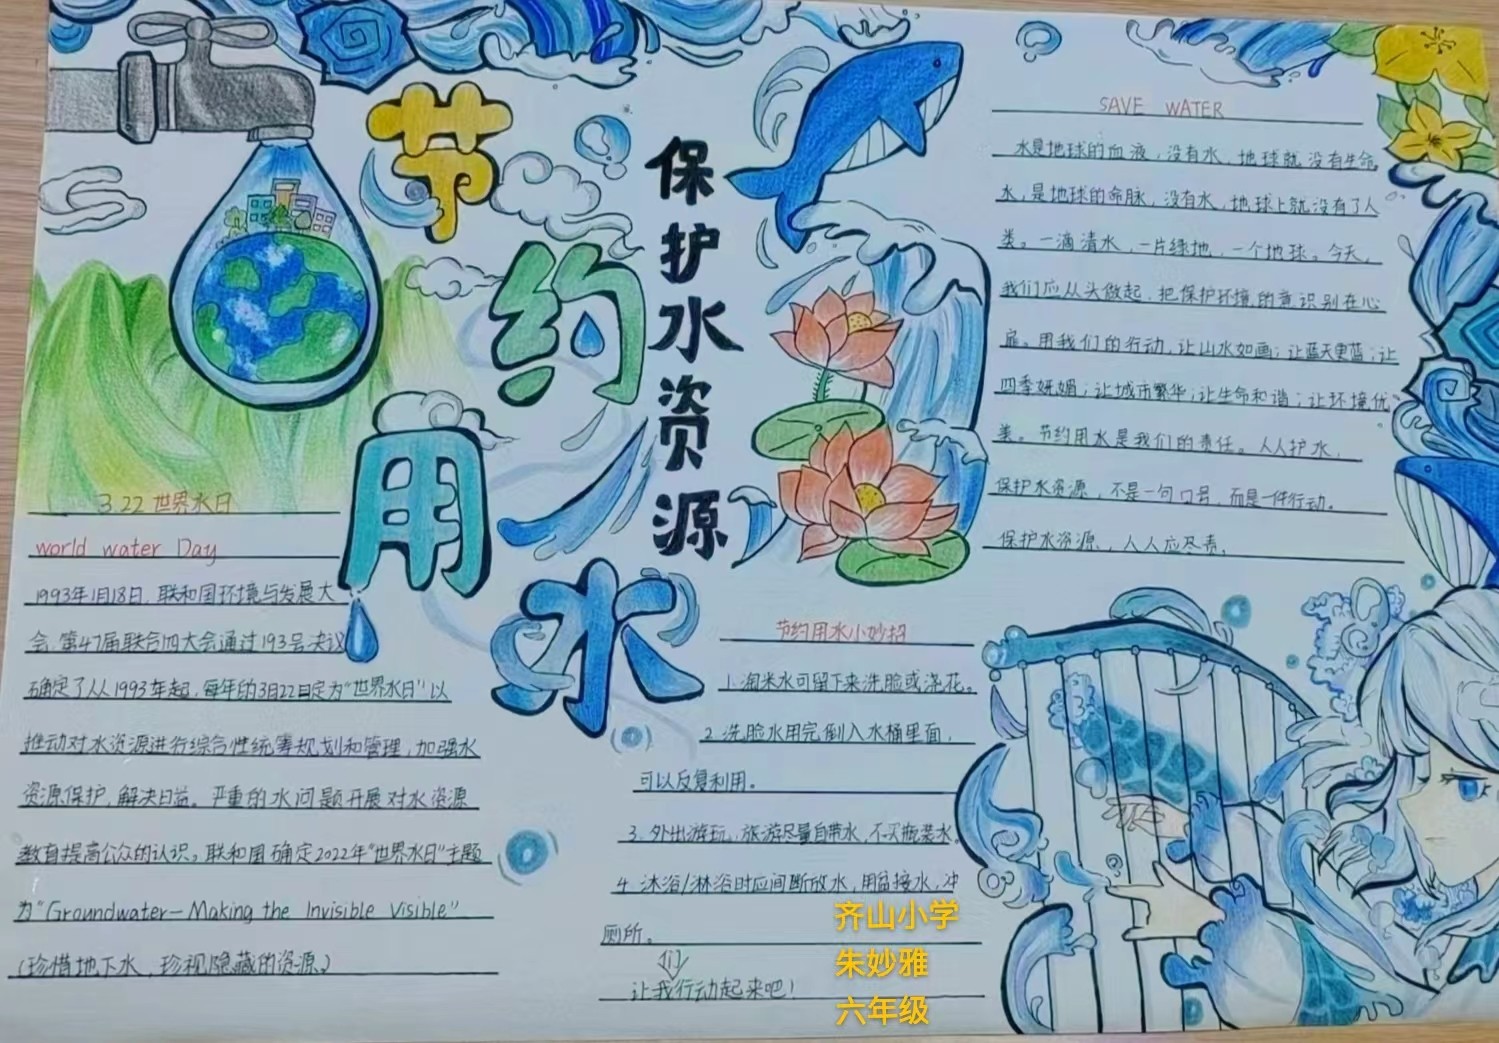 节约用水
保护水资源
3.22世界水日
world water Day
1993年1月18日，联和国环境与发展大
会，第47届联合四大会通过193号决议
确定了从1993年起，每年的3月22日定为“世界水日”以
推动对水资源进行综合性统筹规划和管理，加强水
资源保护，解决日益。严重的水问题开展对水资源
教育提高公众的认识。联和国确定2022年“世界水日”主题
为“Groundwater—Making the Invisible Visible”
（珍惜地下水，珍视隐藏的资源）
SAVE WATER
水是地球的血液，没有水，地球就没有生命，
水，是地球的命脉，没有水，地球上就没有了人
类。一滴清水，一片绿地，一个地球。今天，
我们应从头做起，把保护环境的意识别在心
扉。用我们的行动，让山水如画；让蓝天更蓝；让
四季妩媚；让城市繁华；让生命和谐；让环境优
类。节约用水是我们的责任。人人护水，
保护水资源，不是一句口号，而是一件行动。
保护水资源，人人应尽责。
节约用水小妙招
1.淘米水可留下来洗脸或浇花。
2.洗脸水用完倒入水桶里面，
可以反复利用。
3.外出游玩，旅游尽量自带水，不买瓶装水。
4.沐浴/淋浴时应间断放水，用盆接水，冲
厕所。
让我们行动起来吧！
齐山小学
朱妙雅
六年级